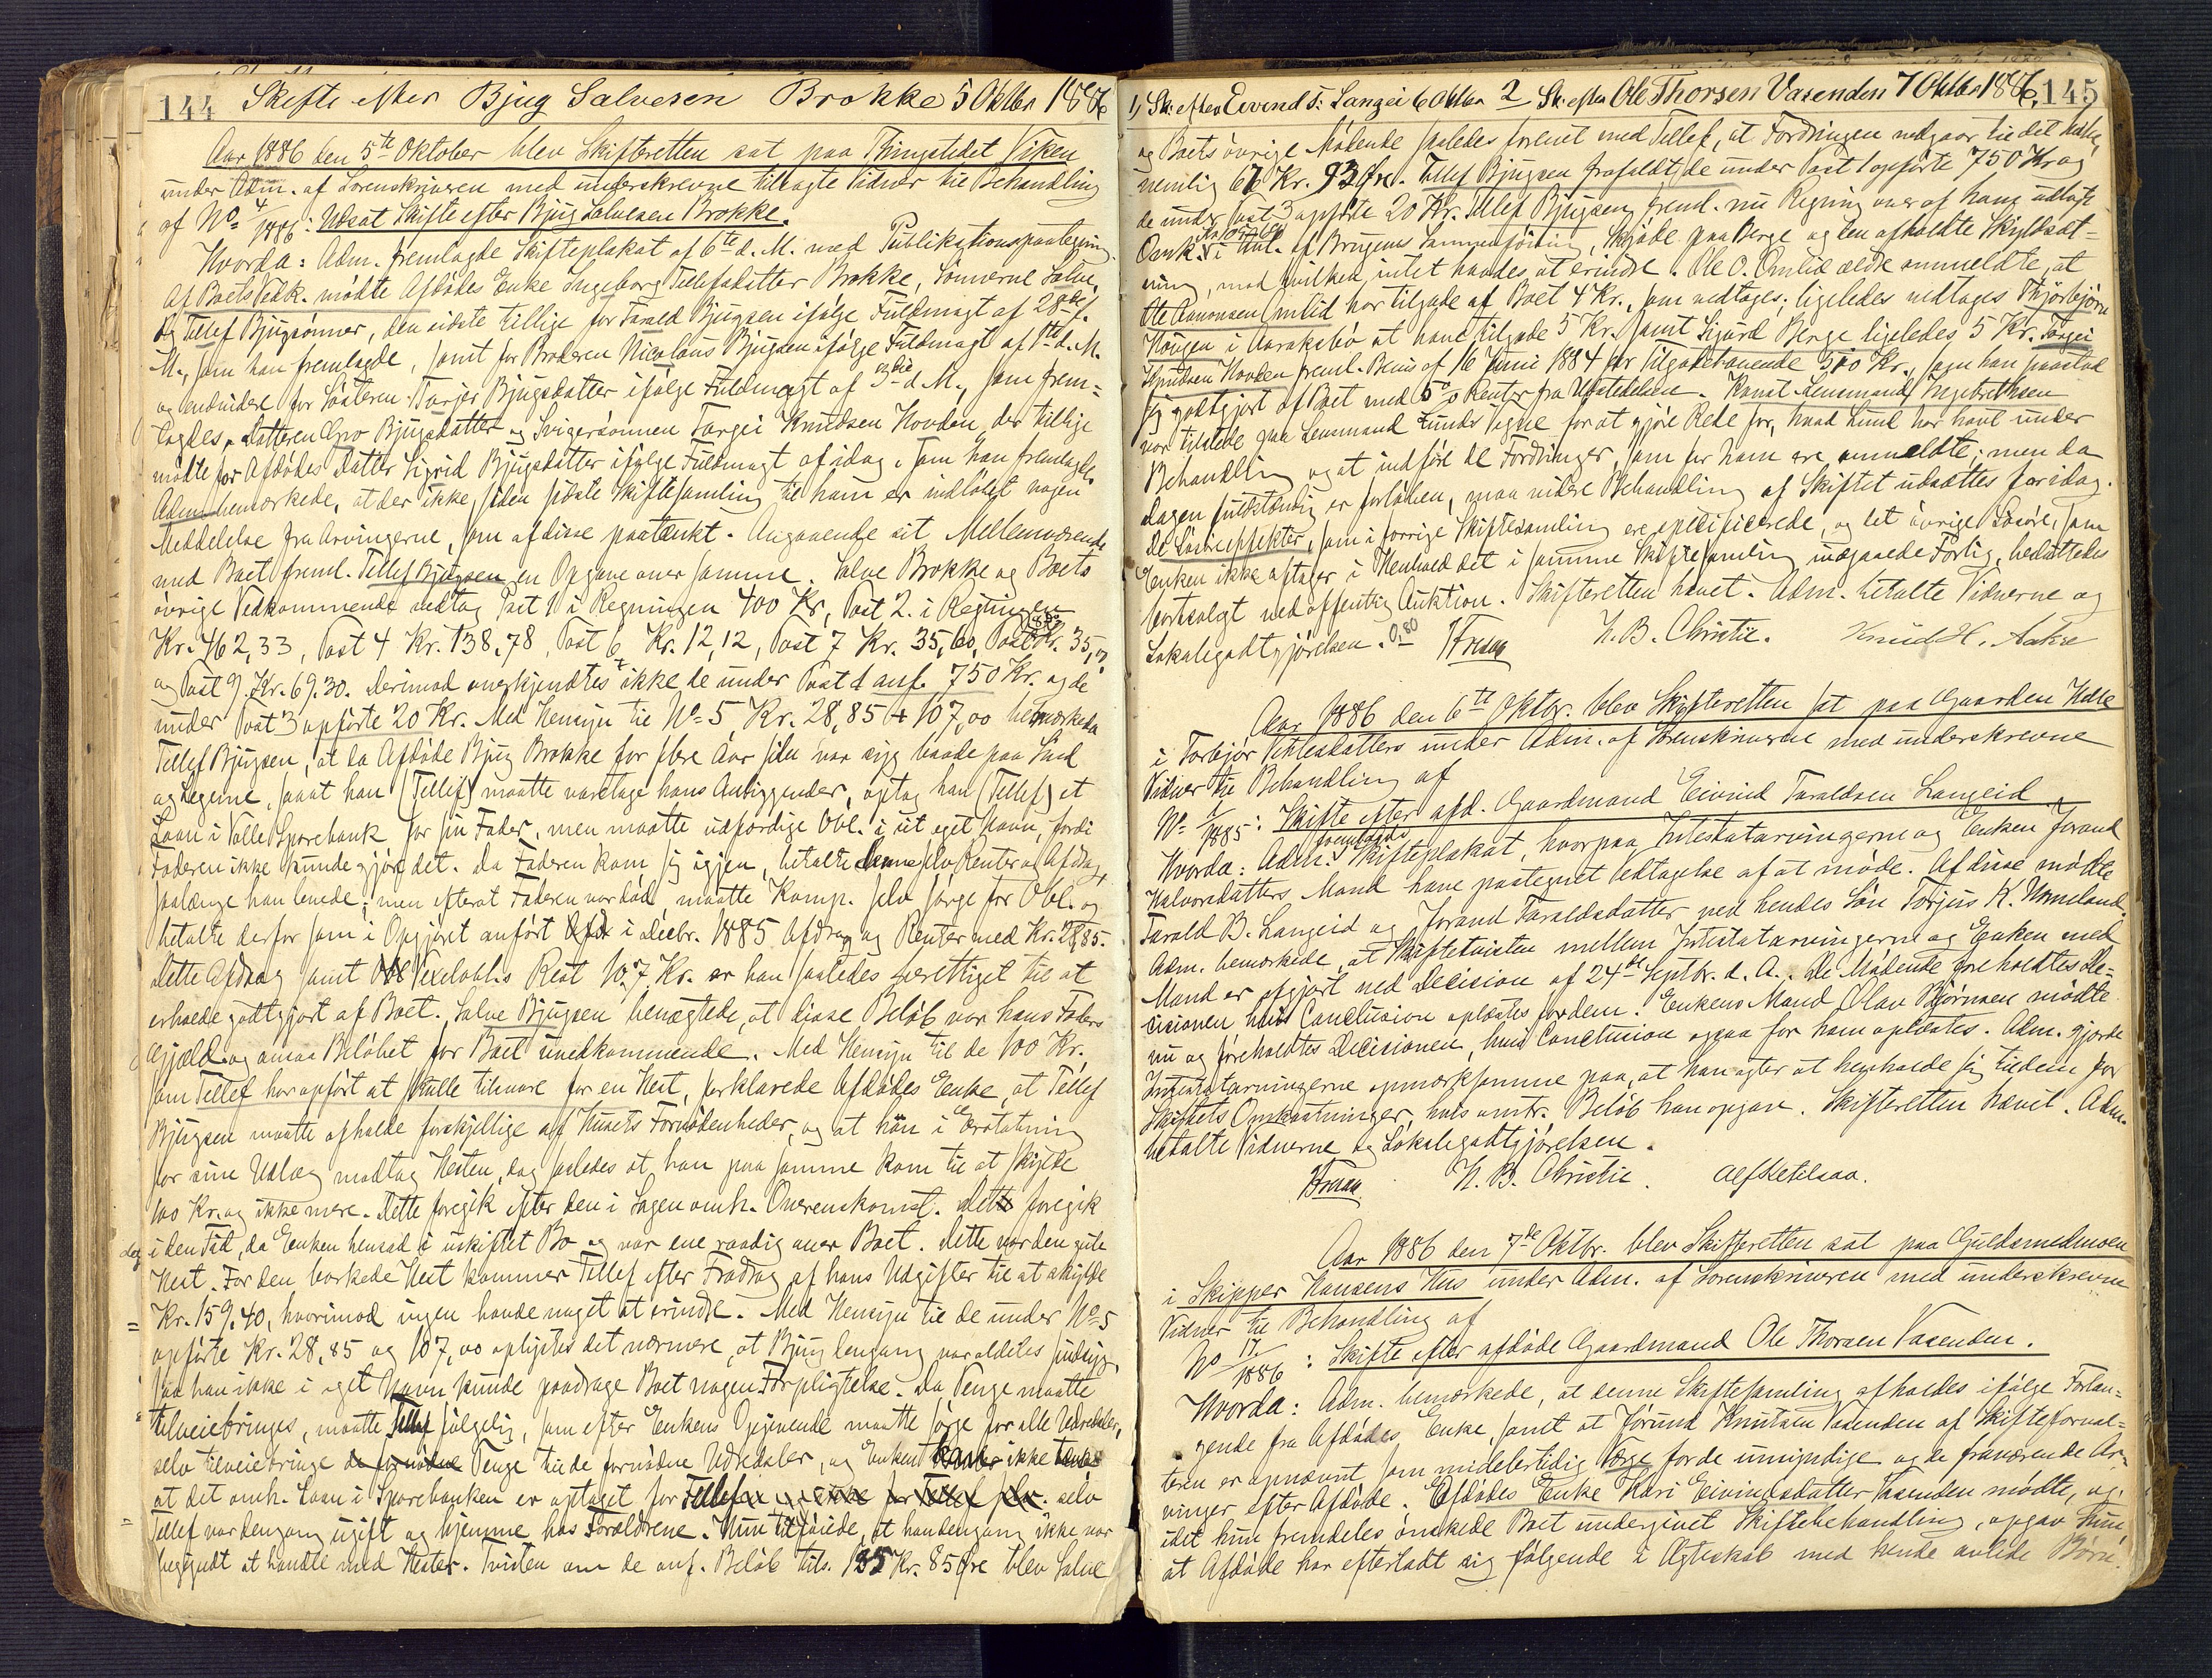 144 Skifte efter Bjug Salvesen Brokke 5 Oktbr 1886
Aar 1886 den 5te Oktober blev Skifteretten sat paa Thingstedet Viken
under Adm. af Sorenskriveren med underskrevne tilkaldte Vidner til Behandling
af No 4/1886: Udsat Skifte efter Bjug Salvesen Brokke.
Hvorda: Adm. fremlagde Skifteplakat af 6te d. M. med Publikationspaategning
Af Boets Vedk. mødte Afdødes Enke Ingeborg Tellefsdatter Brokke, Sønnerne Salve
og Tellef Bjugsønner, den sidste tillige for Tarald Bjugsen ifølge Fuldmagt af 28de f.
M., som han fremlagde, samt for Broderen Nicolaus Bjugsen ifølge Fuldmagt af 1ste d. M.
og endvidere for Søsteren Torjer Bjugsdatter ifølge Fuldmagt af 3die d. M., som frem-
lagdes. Datteren Gro Bjugsdatter og Svigersønnen Targei Knudsen Hovden, der tillige
mødte for Afdødes Datter Sigrid Bjugsdatter ifølge Fuldmagt af idag, som han fremlagde
Adm. bemærkede, at der ikke siden sidste Skiftesamling til ham er indløbet nogen
Meddelelse fra Arvingerne, som af disse paatænkt. Angaaende sit Mellemværende
med Boet freml. Tellef Bjugsen en Opgave over samme. Salve Brokke og Boets
øvrige Vedkommende vedtog Post 1 i Regningen 400 Kr, Post 2. i Regningen
Kr. 462,33, Post 4 Kr. 138,78, Post 6 Kr. 12,12, Post 7 Kr. 35,60, Post 8 Kr. 35,
og Post 9. Kr. 69.30. Derimod anerkjendtes ikke de under Post 1 anf. 750 Kr. og de
under Post 3 opførte 20 Kr. Med Hensyn til No 5 Kr. 28,85 + 107,00 bemærkede
Tellef Bjugsen, at da Afdøde Bjug Brokke for flere Aar siden var syg baade paa Sind
og Legeme, saaat han (Tellef) maatte varetage hans Anliggender, optog han (Tellef) et
Laan i Valle Sparebank for sin Fader, men maatte udfærdige Obl. i sit eget Navn, fordi
Faderen ikke kunde gjøre det. Da Faderen kom sig igjen, betalte denne selv Renter og Afdrag,
saalænge han levede; men efterat Faderen var død, maatte Komp. selv sørge for Obl. og
betalte derfor som i Opgjøret anført i Decbr. 1885 Afdrag og Renter med Kr. 28,85.
Dette Afdrag samt Vexelobl.s Rest 107 Kr. er han saaledes berettiget til at
erholde godtgjort af Boet. Salve Bjugsen benægtede, at disse Beløb var hans Faders
Gjæld og ansaa Beløbet for Boet uvedkommende. Med Hensyn til de 100 Kr.
som Tellef har opført at skulle tilsvare for en Hest, forklarede Afdødes Enke, at Tellef
Bjugsen maatte afholde forskjellige af Husets Fornødenheder, og at han i Erstatning
for sine Udlæg modtog Hesten, dog saaledes at han paa samme kom til at skylde
100 Kr. og ikke mere. Dette foregik efter den i Sagen omh. Overenskomst. Dette foregik
dog i den Tid, da Enken hensad i uskiftet Bo og var ene raadig over Boet. Dette var den gule
Hest. For den borkede Hest kommer Tellef efter Fradrag af hans Udgifter til at skylde
Kr. 159.40, hvorimod ingen havde noget at erindre. Med Hensyn til de under No 5
opførte Kr. 28,85 og 107,00 oplystes det nærmere, at Bjug dengang var aldeles sindsyg,
saa han ikke i eget Navn kunde paadrage Boet nogen Forpligtelse. Da Penge maatte
tilveiebringes, maatte Tellef følgelig, som efter Enkens Opgivende maatte sørge for alle Udredsler,
selv tilveiebringe de fornødne Penge til de fornødne Udredsler, og Enken ikke
at det omh. Laan i Sparebanken er optaget for Tellef selv
Tellef var dengang ugift og hjemme hos Forældrene. Hun tilføiede, at han dengang ikke var
begyndt at handle med Heste. Tvisten om de anf. Beløb tils. 135 Kr. 85 Øre blev Salve
1, Sk. efter Eivind T. Langei 6 Oktbr 2 Sk. efter Ole Thorsen Vasenden 7 Oktbr 1886, 145
og Boets øvrige Mødende saaledes forenet med Tellef, at Fordringen nedgaar til det halve,
nemlig 67 Kr. 93 Øre. Tellef Bjugsen frafaldt de under Post 1 opførte 750 Kr. og
de under Post 3 opførte 20 Kr. Tellef Bjugsen freml. nu Regning over af ham udlagte
Omk. i Anl. af Brugenes Sammenføining, Skjøde paa Berge og den afholdte Skyldsæt-
ning, mod hvilken intet havdes at erindre. Ole O. Omlid ældre anmeldte, at
Ole Aanonsen Omlid har tilgode af Boet 4 Kr., som vedtages; ligeledes vedtages Thjørbjørn
Haugen i Aaraksbø at have tilgode 5 Kr. samt Sigurd Berge ligeledes 5 Kr. Targei
Knudsen Hovden freml. Bevis af 16 Juni 1884 for Tilgodehavende 500 Kr., som han paastod
sig godtgjort af Boet med 5% Renter fra Udstedelsen. Konst. Lensmand Ingebrethsen
var tilstede paa Lensmand Lunds vegne for at gjøre Rede for, hvad Lund har havt under
Behandling og at indføre de Fordringer, som for ham ere anmeldte; men da
Dagen fuldstændig er forløben, maa videre Behandling af Skiftet udsættes for idag.
De Løsøreeffekter, som i forrige Skiftesamling ere specificerede, og det øvrige Løsøre, som
Enken ikke aftager i Henhold det i samme Skiftesamling indgaaede Forlig, besluttedes
bortsolgt ved offentlig Auktion. Skifteretten hævet. Adm. betalte Vidnerne og
Lokalegodtgjørelsen. 0,80 N. B. Christie. Knud H. Aakre
Aar 1886 den 6te Oktbr. blev Skifteretten sat paa Gaarden
i Torbjør under Adm. af Sorenskriveren med underskrevne
Vidner til Behandling af
No 1885: Skifte efter afd. Gaardmand Eivind Taraldsen Langeid
Hvorda: Adm. fremlagde Skifteplakat, hvorpaa Intestatarvingerne og Enken Jorand
Halvorsdatters Mand have paategnet Vedtagelse af at møde. Af disse mødte
Tarald B. Langeid og Jorand Taraldsdatter ved hendes Søn Torjus K. Homeland.
Adm. bemærkede, at Skiftetvisten mellem Intestatarvingerne og Enken med
Mand er afgjort ved Decision af 24de Septbr. d. A.. De Mødende foreholdtes De-
cisionen hvis Conclusion oplæstes for dem. Enkens Mand Olav Bjørnsen mødte
nu og foreholdtes Decisionen, hvis Conclusion ogsaa for ham oplæstes. Adm. gjorde
Intestatarvingerne opmærksomme paa, at han agter at henholde sig til dem for
Skiftets Omkostninger, hvis omtr. Beløb han opgav. Skifteretten hævet. Adm.
betalte Vidnerne og Lokalegodtgjørelsen.
N. B. Christie. Alf Ketilsaa.
Aar 1886 den 7de Oktbr. blev Skifteretten sat paa Guldsmedmoen
i Skipper Hansens Hus under Adm. af Sorenskriveren med underskrevne
Vidner til Behandling af
No 17/1886: Skifte efter afdøde Gaardmand Ole Thorsen Vasenden.
Hvorda: Adm. bemærkede, at denne Skiftesamling afholdes ifølge Forlan-
gende fra Afdødes Enke, samt at Jørund Knutsen Vasenden af Skifteforval-
teren er opnævnt som midlertidig Værge for de umyndige og de fraværende Ar-
vinger efter Afdøde. Afdødes Enke Kari Eivindsdatter Vasenden mødte, og
idet hun fremdeles ønskede Boet undergivet Skiftebehandling, opgav hun
at Afdøde har efterladt sig følgende i Ægteskab med hende avlede Børn: